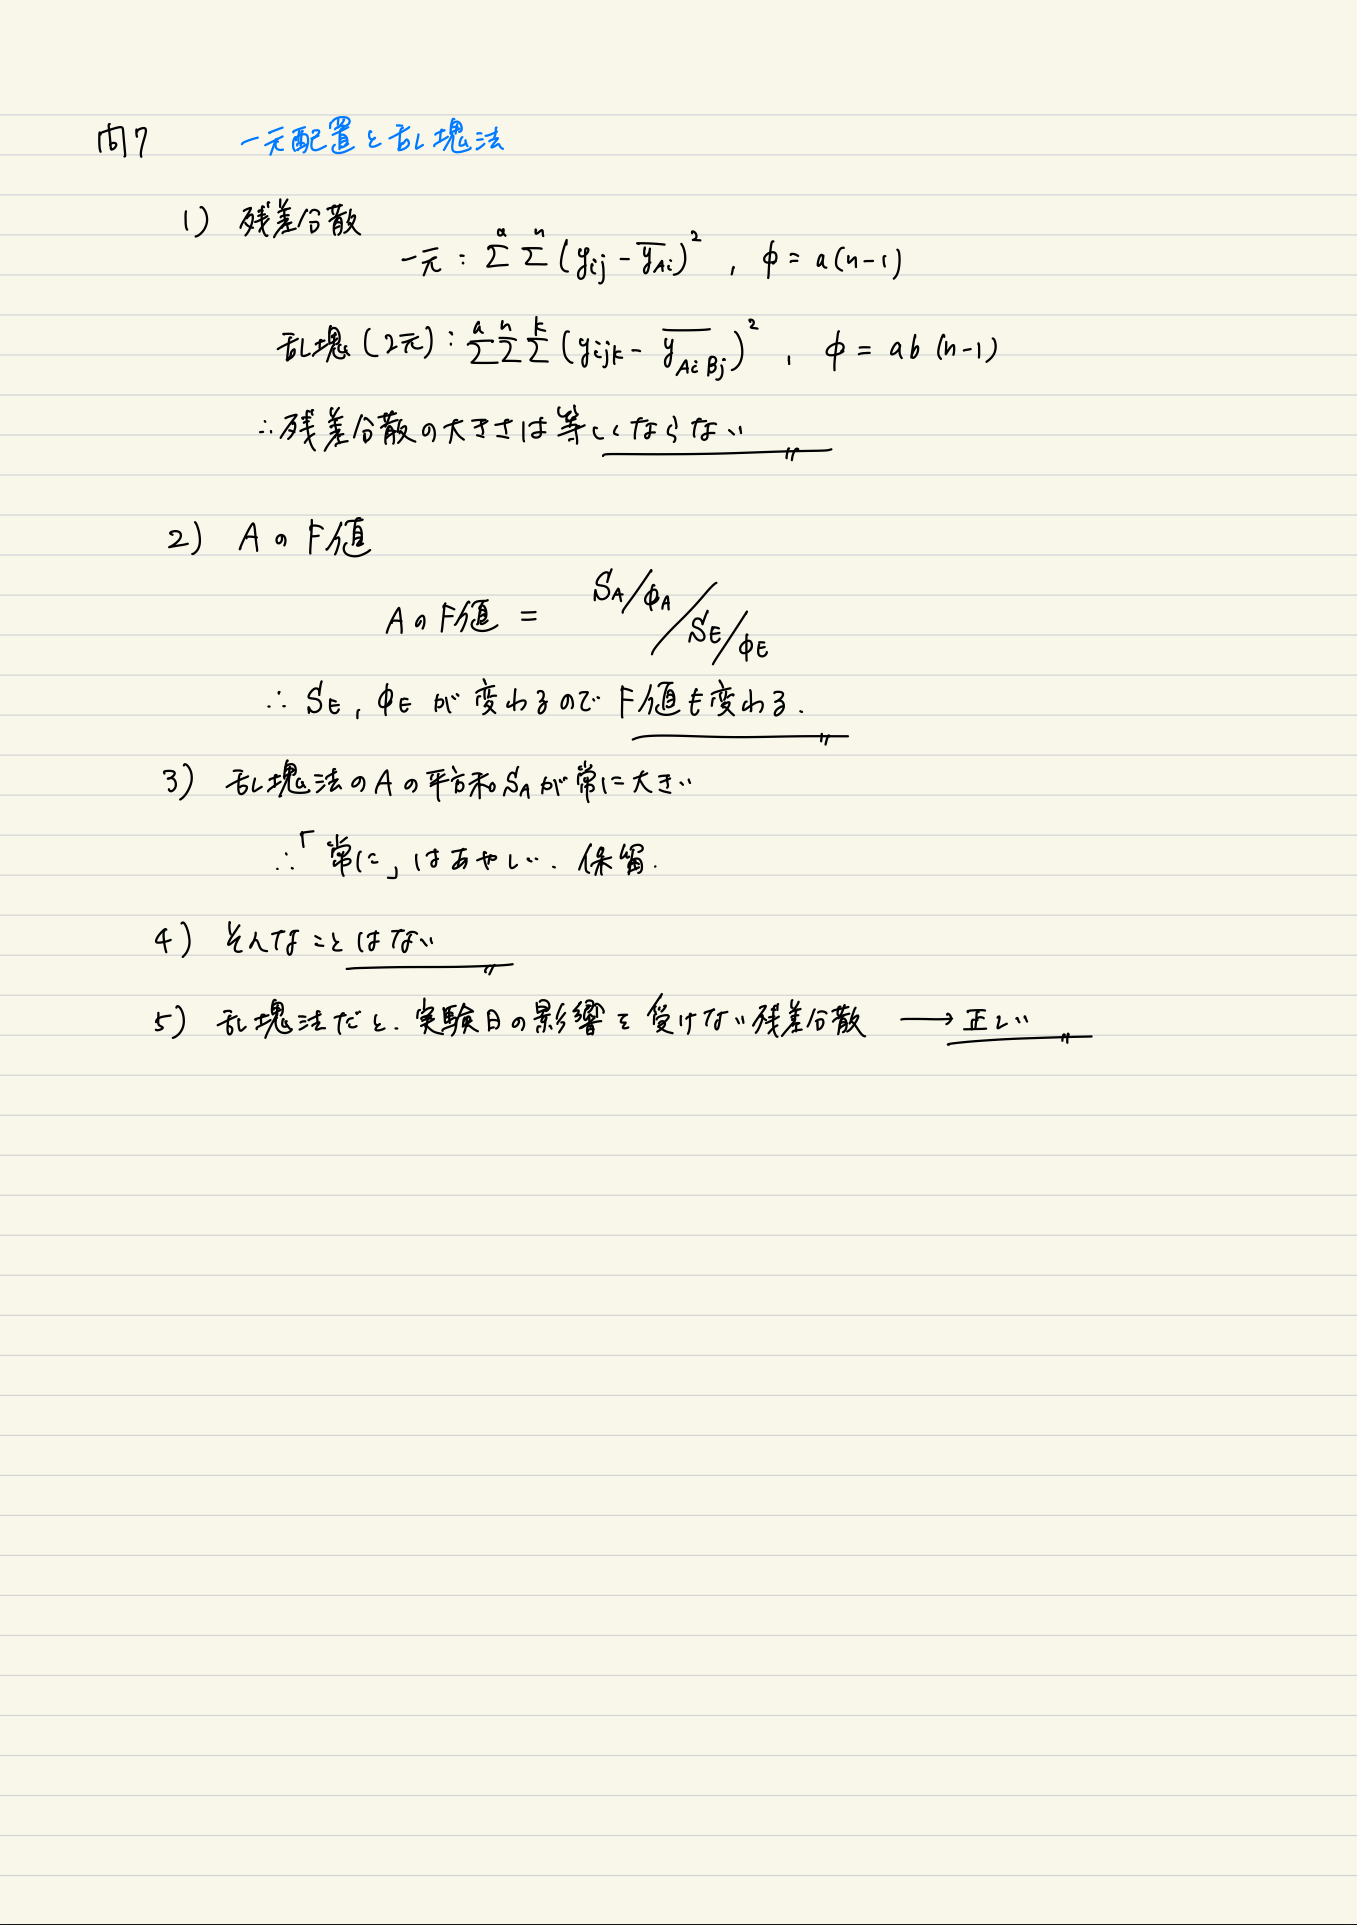 問7 一元配置と乱塊法
1) 残差分散
一元: a Σ n Σ (yij - ȳAi)², φ = a(n-1)
乱塊(2元): a Σ n Σ k Σ (yijk - ȳAiBj)², φ = ab(n-1)
∴残差分散の大きさは等しくならない
2) AのF値
AのF値 = SA/φA / SE/φE
∴ SE, φE が変わるのでF値も変わる.
3) 乱塊法のAの平方和SAが常に大きい
∴「常に」はあやしい. 保留.
4) そんなことはない
5) 乱塊法だと. 実験日の影響を受けない残差分散 → 正しい